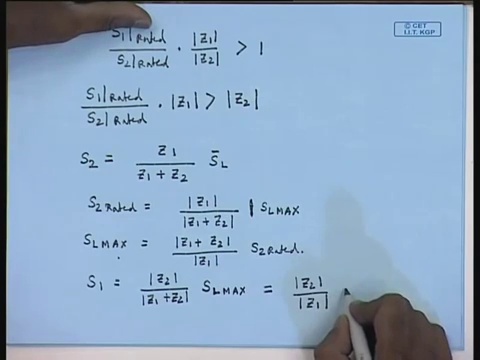 © CET
I.I.T. KGP
S₁|Rated / S₂|Rated · |Z₁| / |Z₂| > 1
S₁|Rated / S₂|Rated · |Z₁| > |Z₂|
S₂ = Z₁ / (Z₁ + Z₂) S̄L
S₂ Rated = |Z₁| / |Z₁ + Z₂| | SLMAX
SLMAX = |Z₁ + Z₂| / |Z₁| S₂ Rated.
S₁ = |Z₂| / |Z₁ + Z₂| SLMAX = |Z₂| / |Z₁|